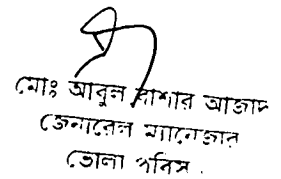 মোঃ আবুল বাশার আজাদ
জেনারেল ম্যানেজার
ভোলা পবিস